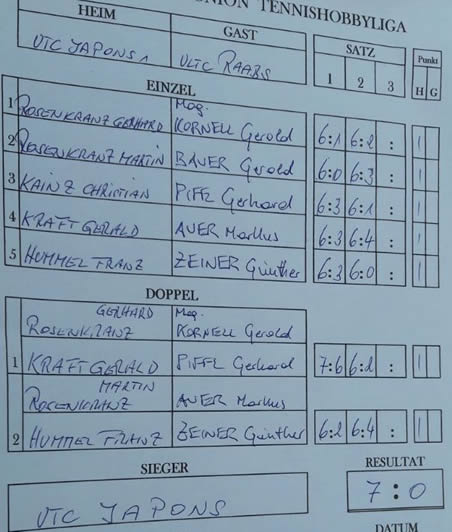 UNION TENNISHOBBYLIGA
HEIM GAST SATZ Punkt
UTC JAPONS 1 ULTC RAABS 1 2 3 H G
EINZEL
1 ROSENKRANZ GERHARD Mag. KORNELL Gerold 6:1 6:2 : 1
2 ROSENKRANZ MARTIN BAUER Gerold 6:0 6:3 : 1
3 KAINZ CHRISTIAN PIFFL Gerhard 6:3 6:1 : 1
4 KRAFT GERALD AUER Markus 6:3 6:4 : 1
5 HUMMEL FRANZ ZEINER Günther 6:3 6:0 : 1
DOPPEL
GERHARD Mag.
ROSENKRANZ KORNELL Gerold
1 KRAFT GERALD PIFFL Gerhard 7:6 6:2 : 1
MARTIN
ROSENKRANZ AUER Markus
2 HUMMEL FRANZ ZEINER Günther 6:2 6:4 : 1
SIEGER RESULTAT
UTC JAPONS 7:0
DATUM